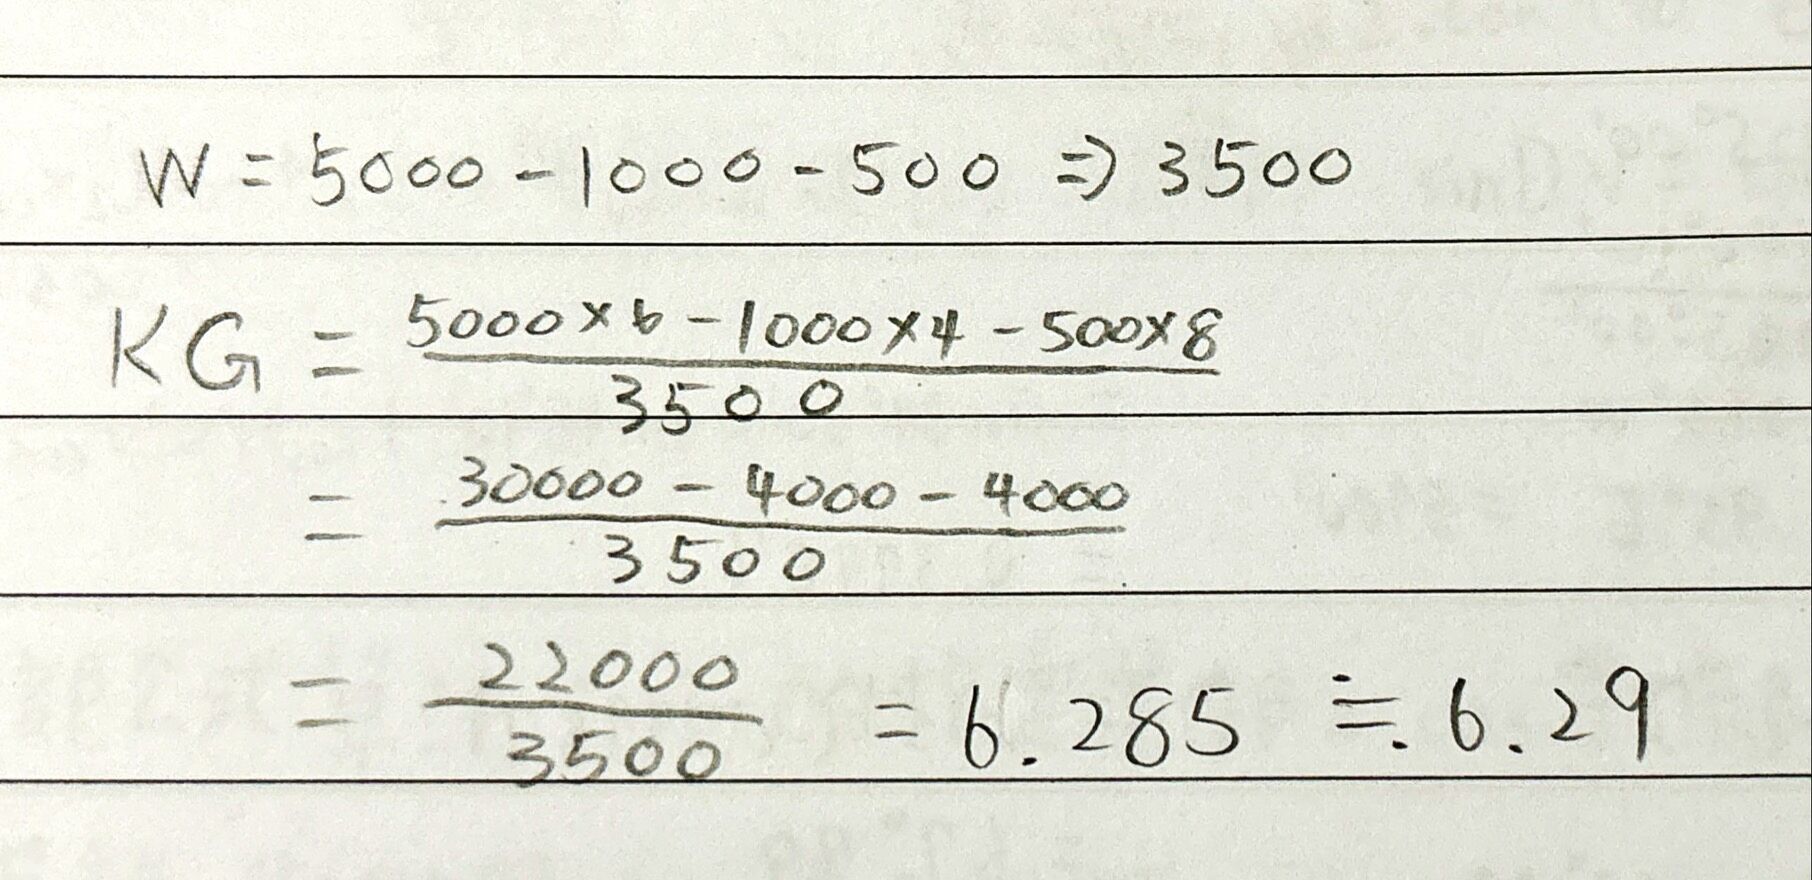 W = 5000 - 1000 - 500 ⇒ 3500
KG = 5000×6 - 1000×4 - 500×8
3500
= 30000 - 4000 - 4000
3500
= 22000
3500
= 6.285 ≒ 6.29